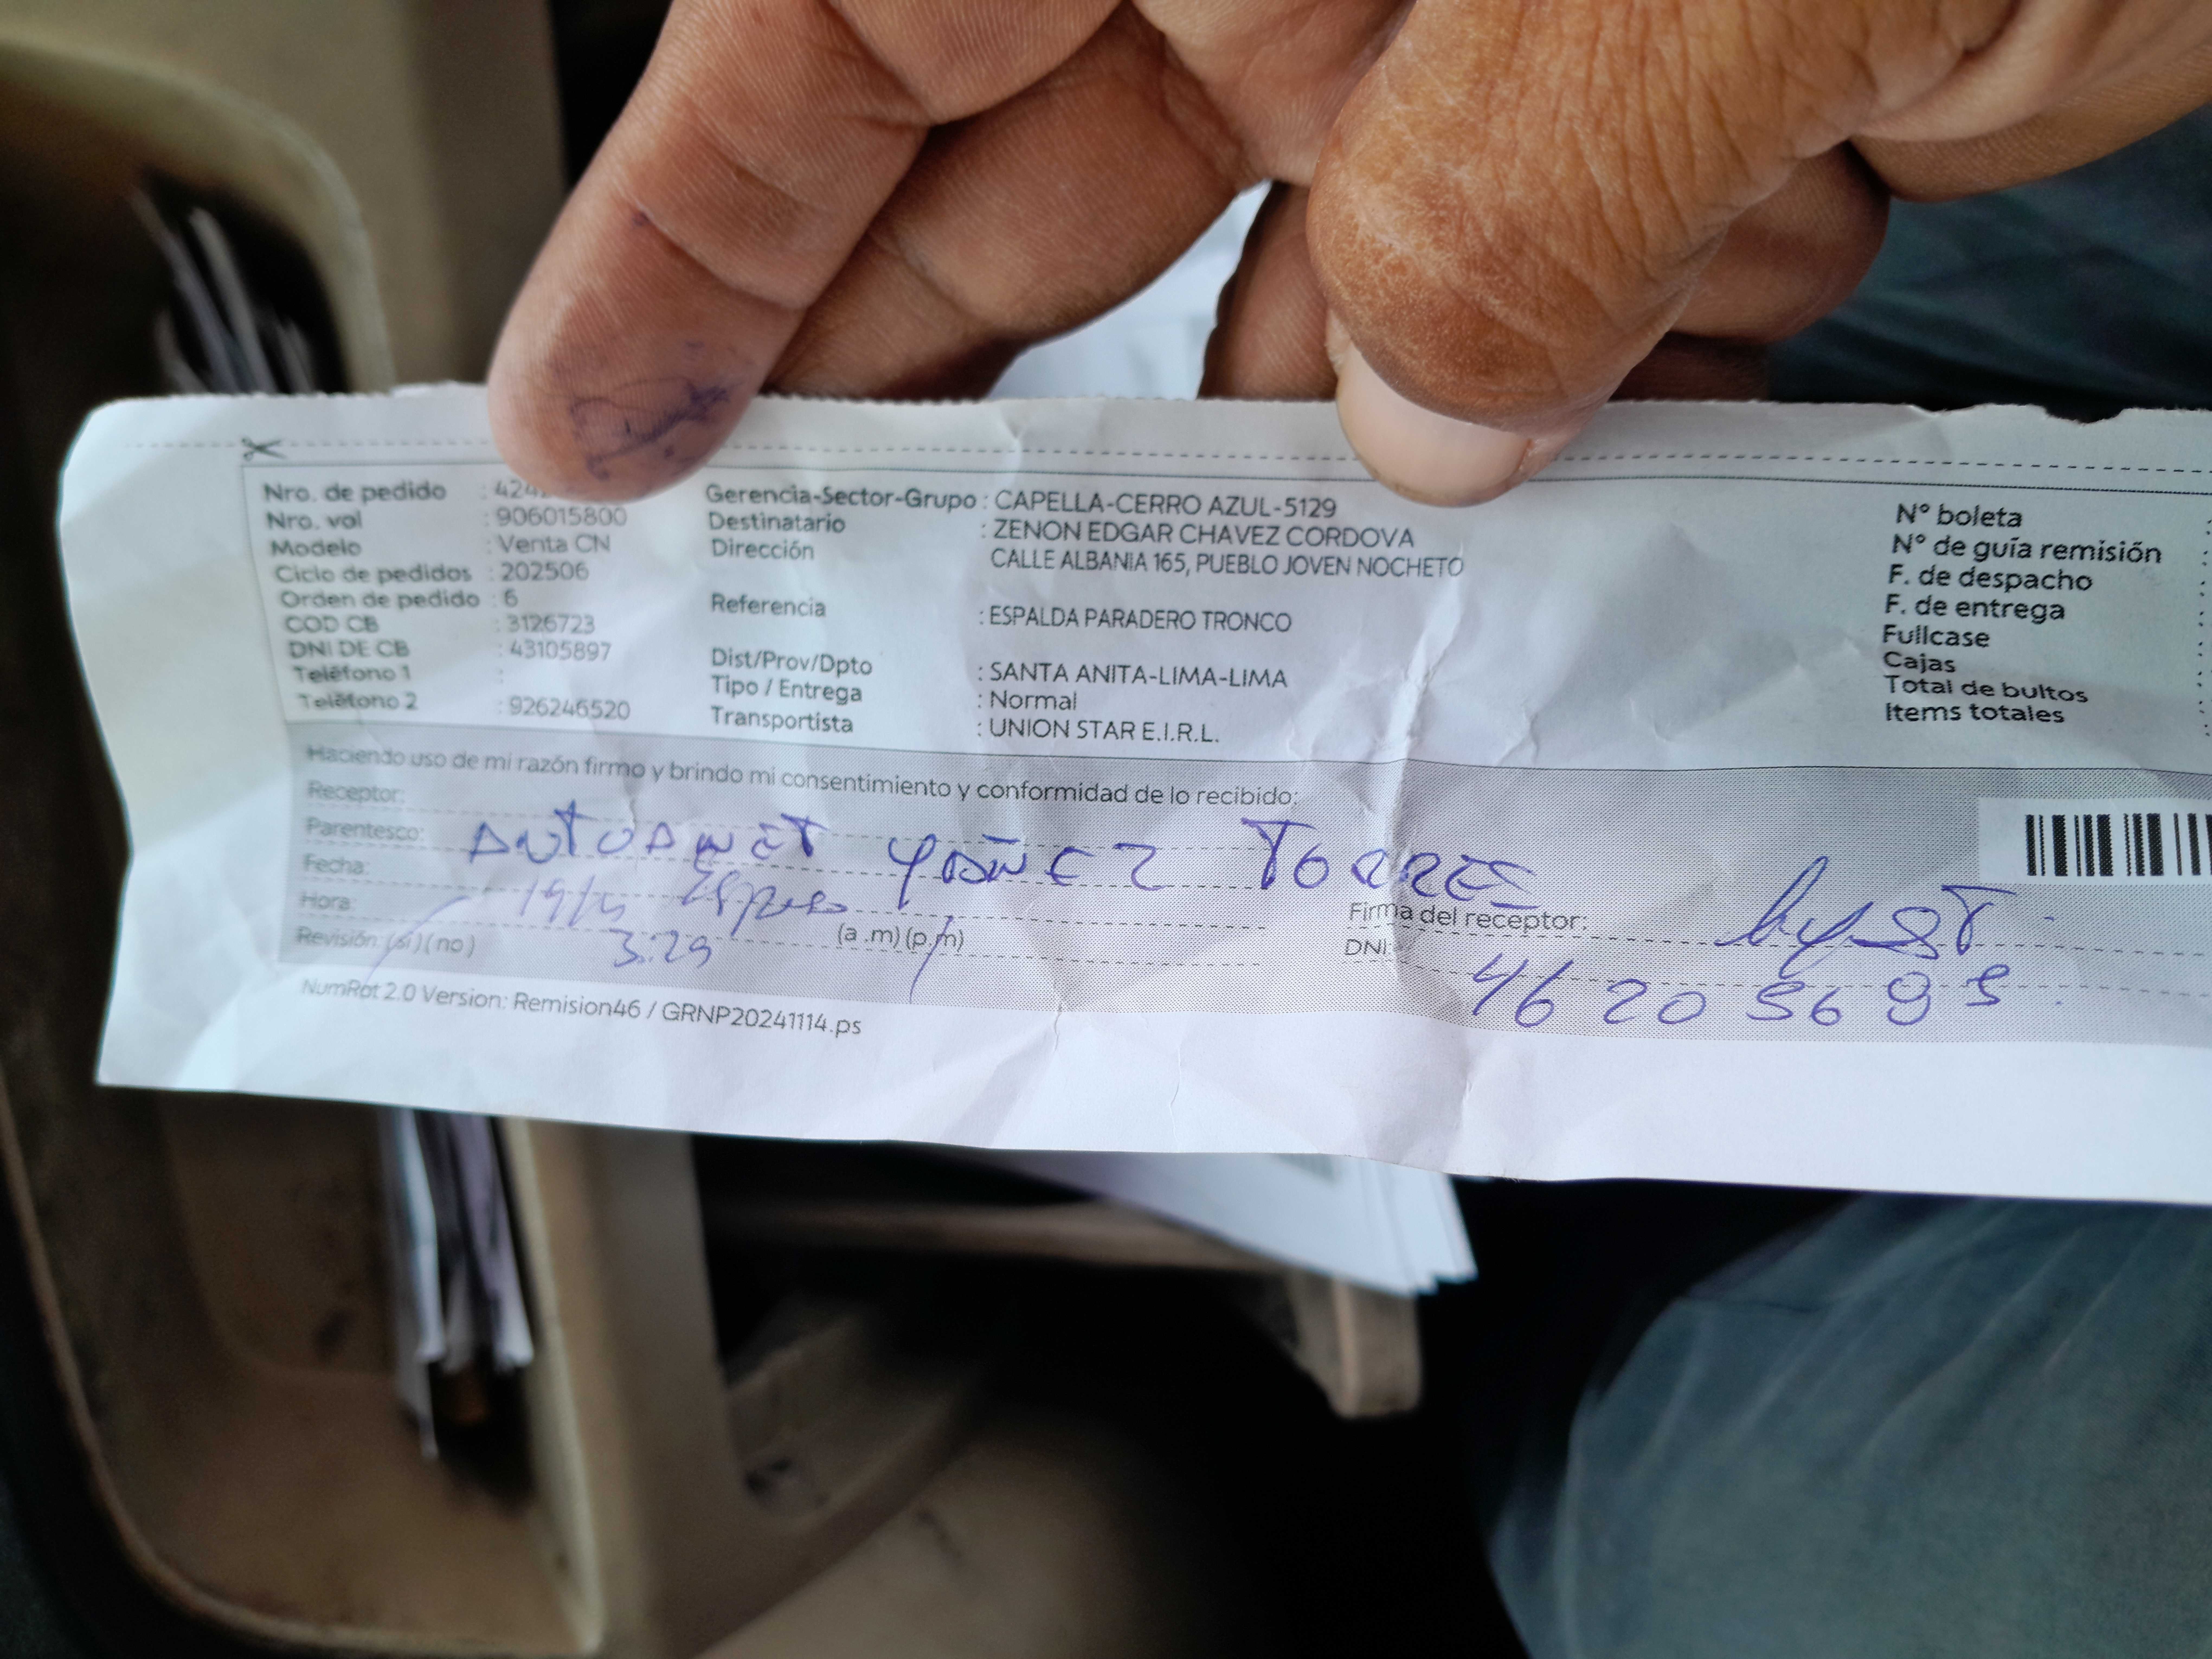 Nro. de pedido : 424
Nro. vol : 906015800
Modelo : Venta CN
Ciclo de pedidos : 202506
Orden de pedido : 6
COD CB : 3126723
DNI DE CB : 43105897
Teléfono 1 :
Teléfono 2 : 926246520
Gerencia-Sector-Grupo : CAPELLA-CERRO AZUL-5129
Destinatario : ZENON EDGAR CHAVEZ CORDOVA
Dirección CALLE ALBANIA 165, PUEBLO JOVEN NOCHETO
Referencia : ESPALDA PARADERO TRONCO
Dist/Prov/Dpto : SANTA ANITA-LIMA-LIMA
Tipo / Entrega : Normal
Transportista : UNION STAR E.I.R.L.
N° boleta :
N° de guía remisión :
F. de despacho :
F. de entrega :
Fullcase :
Cajas :
Total de bultos :
Items totales :
Haciendo uso de mi razón firmo y brindo mi consentimiento y conformidad de lo recibido:
Receptor:
Parentesco: ANTUANET YAÑEZ TORRES
Fecha:
Hora: 3:29 (a .m) (p.m)
Revisión: (si) (no)
Firma del receptor:
DNI:
NumRot 2.0 Version: Remision46 / GRNP20241114.ps